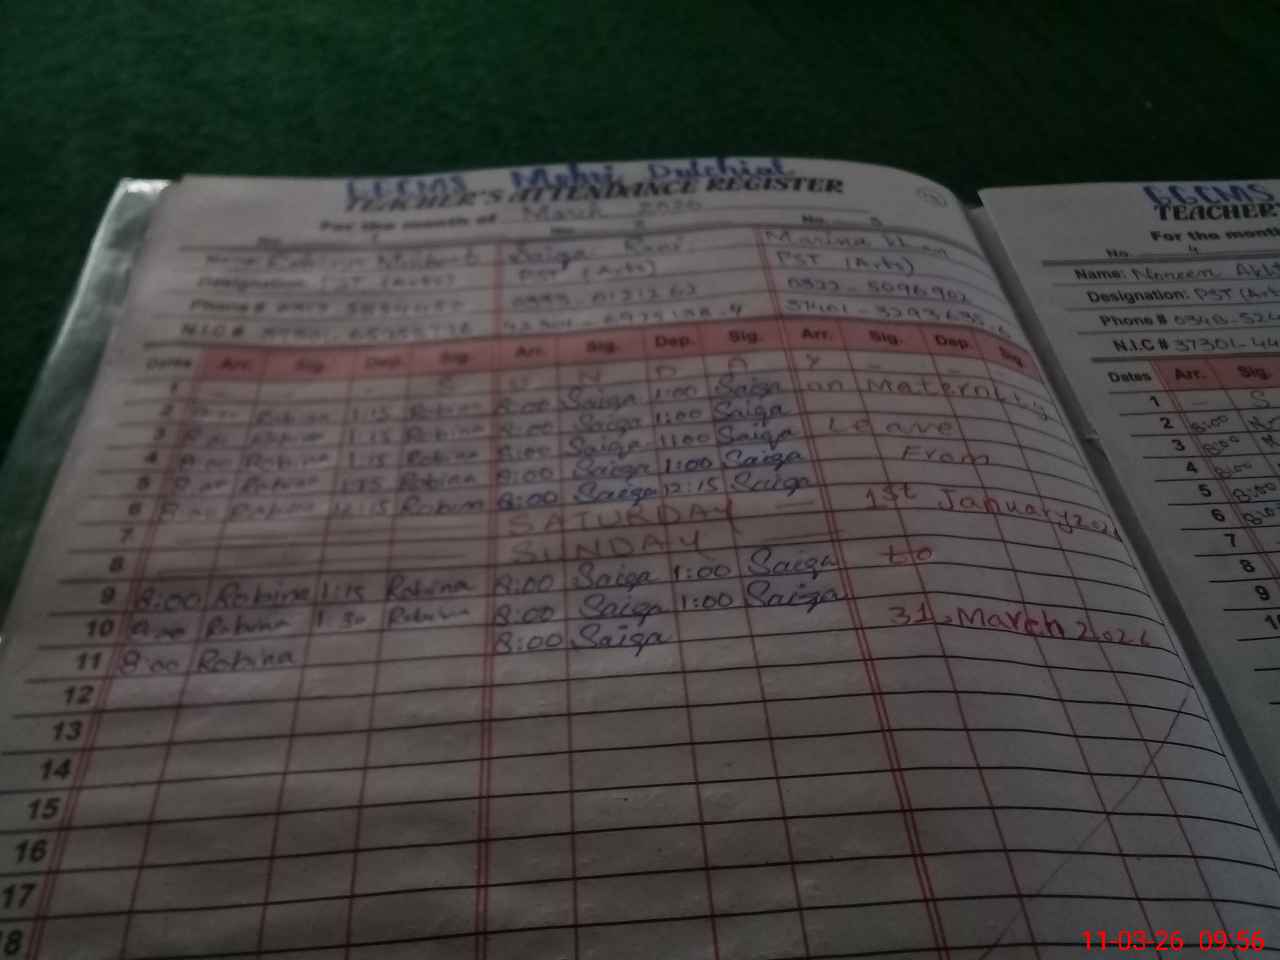 GGCMS Mohri Dulchial
TEACHER'S ATTENDANCE REGISTER
For the month of March 2026
No. 3
Name: Saiqa Marina Khan
Designation: PST (Arts) PST (Arts) PST (Arts)
Phone # 0322-5096902
N.I.C #
Dates Arr. Sig. Dep. Sig. Arr. Sig. Dep. Sig. Arr. Sig. Dep. Sig.
1 S U N D A Y
2 8:00 Robina 1:15 Robina 8:00 Saiqa 1:00 Saiqa on Maternity
3 8:00 Robina 1:15 Robina 8:00 Saiqa 1:00 Saiqa Leave
4 8:00 Robina 1:15 Robina 8:00 Saiqa 1:00 Saiqa From
5 8:00 Robina 1:15 Robina 8:00 Saiqa 1:00 Saiqa
6 8:00 Robina 12:15 Robina 8:00 Saiqa 12:15 Saiqa 1st January 2026
7 SATURDAY
8 SUNDAY to
9 8:00 Robina 1:15 Robina 8:00 Saiqa 1:00 Saiqa
10 8:00 Robina 1:30 Robina 8:00 Saiqa 1:00 Saiqa 31, March 2026
11 8:00 Robina 8:00 Saiqa
12
13
14
15
16
17
18
GGCMS
TEACHER
For the month
No. 4
Name: Noreen
Designation: PST (Arts
Phone # 0348-524
N.I.C # 37301-44
Dates Arr. Sig.
1 S
2 8:00
3 8:00
4 8:00
5 8:00
6 8:00
7
8
9
11-03-26 09:56